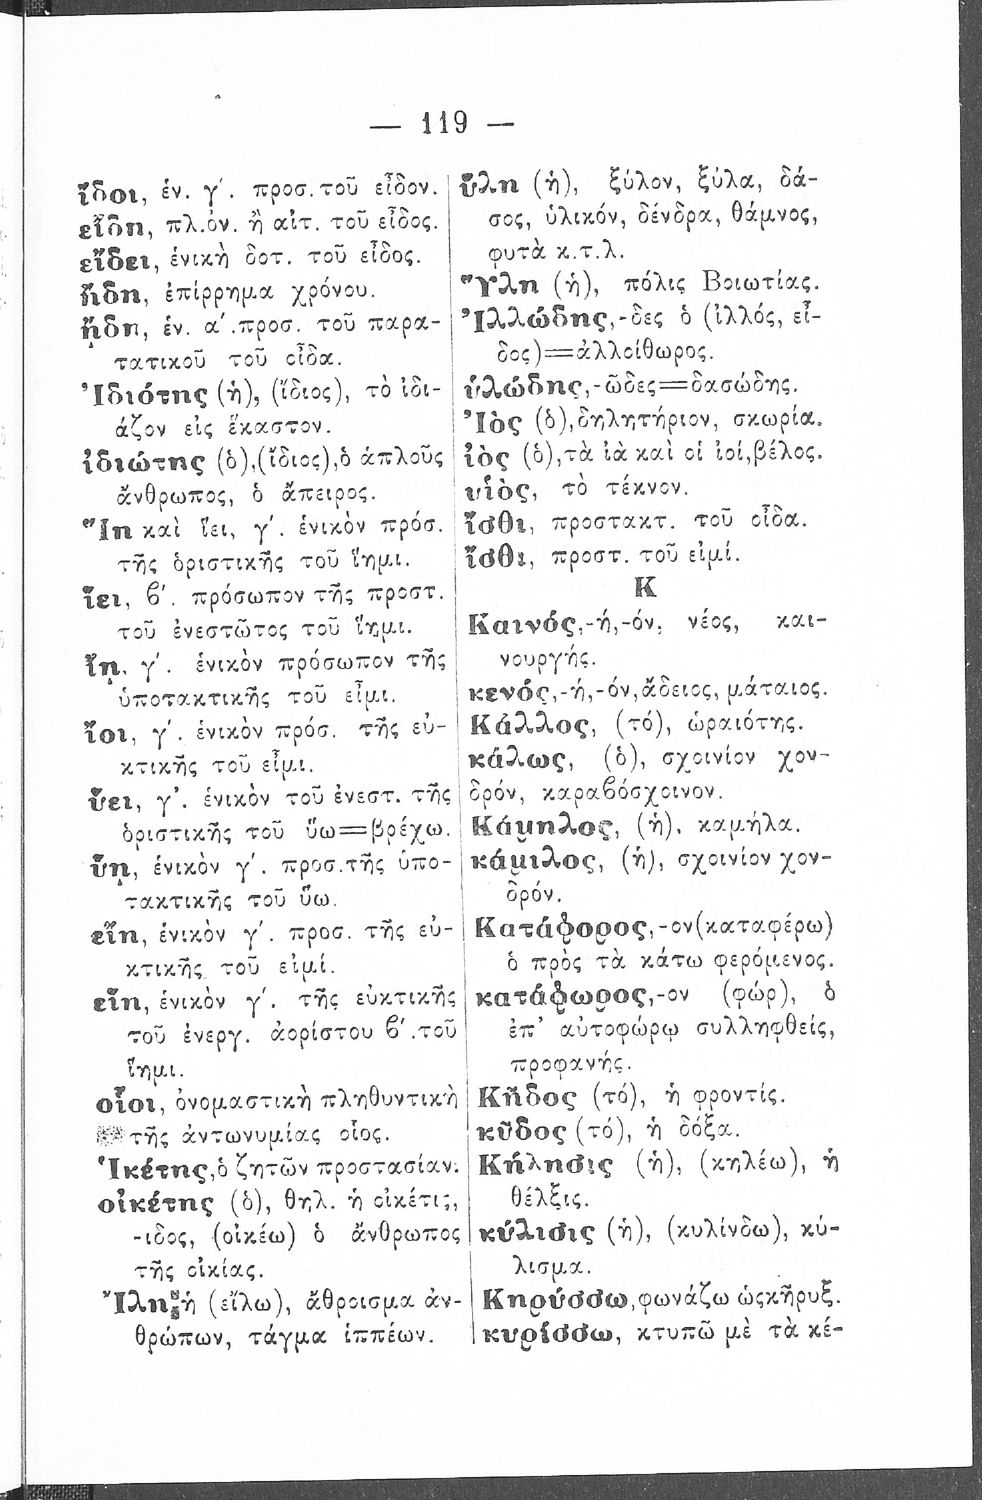 — 119 —
ἴδοι, ἑν. γ΄. προσ. τοῦ εἶδον.
εἴδη, πλ. ὀν. ἢ αἰτ. τοῦ εἶδος.
εἴδει, ἑνικὴ δοτ. τοῦ εἶδος.
ἤδη, ἐπίρρημα χρόνου.
ᾔδη, ἑν. α΄. προσ. τοῦ παρα-
τατικοῦ τοῦ οἶδα.
Ἰδιότης (ἡ), (ἴδιος), τὸ ἰδι-
άζον εἰς ἕκαστον.
ἰδιώτης (ὁ), (ἴδιος), ὁ ἁπλοῦς
ἄνθρωπος, ὁ ἄπειρος.
Ἵη καὶ ἵει, γ΄. ἑνικὸν πρόσ.
τῆς ὁριστικῆς τοῦ ἵημι.
ἵει, β΄. πρόσωπον τῆς προστ.
τοῦ ἐνεστῶτος τοῦ ἵημι.
ἴῃ, γ΄. ἑνικὸν πρόσωπον τῆς
ὑποτακτικῆς τοῦ εἶμι.
ἴοι, γ΄. ἑνικὸν πρόσ. τῆς εὐ-
κτικῆς τοῦ εἶμι.
ὕει, γ΄. ἑνικὸν τοῦ ἐνεστ. τῆς
ὁριστικῆς τοῦ ὕω=βρέχω.
ὕῃ, ἑνικὸν γ΄. προσ. τῆς ὑπο-
τακτικῆς τοῦ ὕω.
εἴη, ἑνικὸν γ΄. προσ. τῆς εὐ-
κτικῆς τοῦ εἰμί.
εἵη, ἑνικὸν γ΄. τῆς εὐκτικῆς
τοῦ ἐνεργ. ἀορίστου β΄. τοῦ
ἵημι.
οἷοι, ὀνομαστικὴ πληθυντικὴ
τῆς ἀντωνυμίας οἷος.
Ἱκέτης, ὁ ζητῶν προστασίαν.
οἰκέτης (ὁ), θηλ. ἡ οἰκέτις,
-ιδος, (οἰκέω) ὁ ἄνθρωπος
τῆς οἰκίας.
Ἴλη ἡ (εἴλω), ἄθροισμα ἀν-
θρώπων, τάγμα ἱππέων.
ὕλη (ἡ), ξύλον, ξύλα, δά-
σος, ὑλικόν, δένδρα, θάμνος,
φυτὰ κ.τ.λ.
Ὕλη (ἡ), πόλις Βοιωτίας.
Ἰλλώδης,-δες ὁ (ἰλλός, εἶ-
δος)=ἀλλοίθωρος.
ὑλώδης,-ῶδες=δασώδης.
Ἰὸς (ὁ), δηλητήριον, σκωρία.
ἰὸς (ὁ), τὰ ἰὰ καὶ οἱ ἰοί, βέλος.
υἱὸς, τὸ τέκνον.
ἴσθι, προστακτ. τοῦ οἶδα.
ἴσθι, προστ. τοῦ εἰμί.
Κ
Καινός,-ή,-όν, νέος, και-
νουργής.
κενός,-ή,-όν, ἄδειος, μάταιος.
Κάλλος, (τό), ὡραιότης.
κάλως, (ὁ), σχοινίον χον-
δρόν, καραβόσχοινον.
Κάμηλος, (ἡ), καμήλα.
κάμιλος, (ἡ), σχοινίον χον-
δρόν.
Κατάφορος,-ον (καταφέρω)
ὁ πρὸς τὰ κάτω φερόμενος.
κατάφωρος,-ον (φώρ), ὁ
ἐπ' αὐτοφώρῳ συλληφθείς,
προφανής.
Κῆδος (τό), ἡ φροντίς.
κῦδος (τό), ἡ δόξα.
Κήλησις (ἡ), (κηλέω), ἡ
θέλξις.
κύλισις (ἡ), (κυλίνδω), κύ-
λισμα.
Κηρύσσω, φωνάζω ὡς κῆρυξ.
κυρίσσω, κτυπῶ μὲ τὰ κέ-